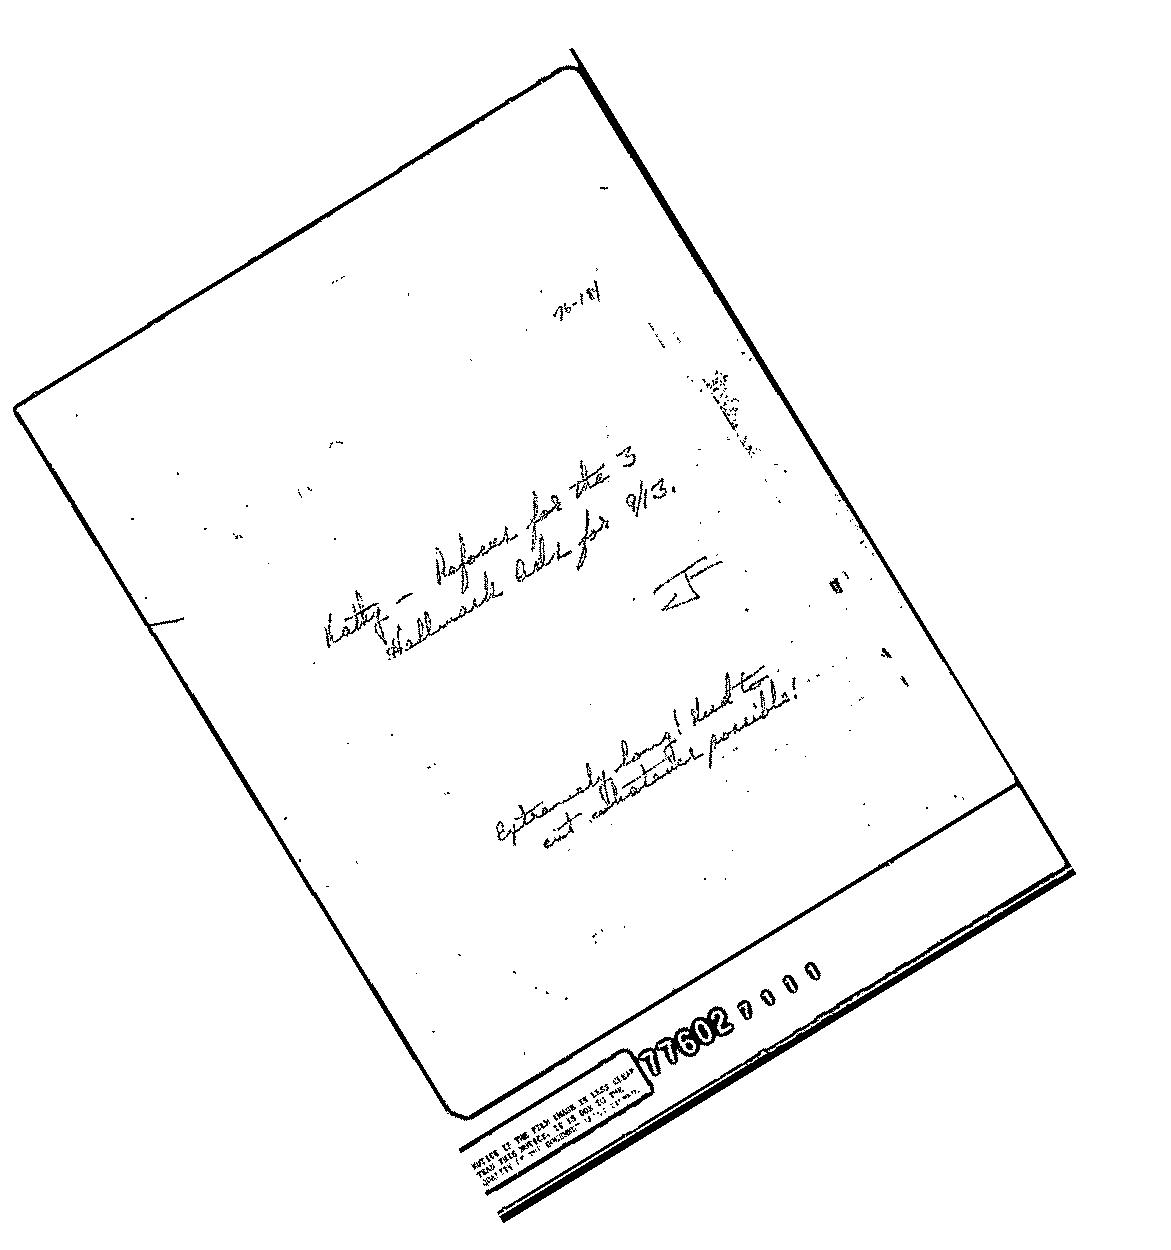 76-181
Kathy - Reforer for the 3
Hallmark Ads for 9/13.
Extremely long! Need to
cut whatever possible!
776027000
NOTICE IF THE FILM IMAGE IS LESS CLEAR
THAN THIS NOTICE, IT IS DUE TO THE
QUALITY OF THE DOCUMENT